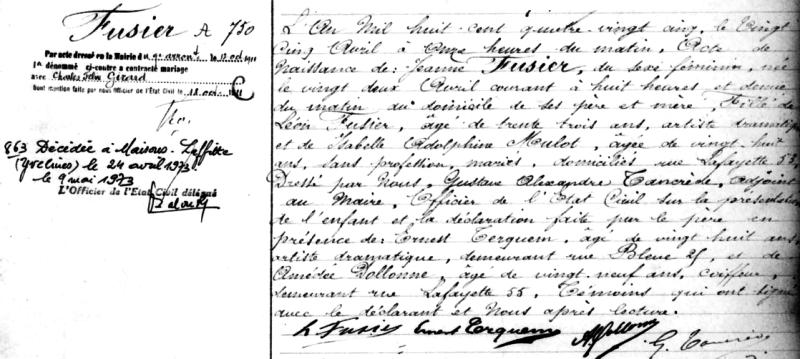 Fusier A 750
Par acte dressé en la Mairie du
dénommé ci-contre a contracté mariage
avec Charles John Gérard
Dont mention faite par nous Officier de l'Etat Civil le 18 oct. 1911
863 Décédée à Maisons-Laffitte
(Yvelines) le 24 avril 1973.
le 9 mai 1973
L'Officier de l'Etat Civil délégué
L'An Mil huit cent quatre vingt cinq, le Vingt
Cinq Avril à Onze heures du matin, Acte de
Naissance de: Jeanne Fusier, du sexe féminin, née
le vingt deux Avril courant à huit heures et demie
du matin au domicile de ses père et mère, Fille de
Léon Fusier, âgé de trente trois ans, artiste dramatique
et de Isabelle Adolphine Mulot, âgée de vingt huit
ans, sans profession, mariés, domiciliés rue Lafayette 55,
Dressé par Nous, Gustave Alexandre Tancrède, adjoint
au Maire, Officier de l'Etat Civil sur la présentation
de l'enfant et la déclaration faite par le père en
présence de: Ernest Terquem, âgé de vingt huit ans,
artiste dramatique, demeurant rue Bleue 25, et de
Amédée Dollonne, âgé de vingt neuf ans, coiffeur,
demeurant rue Lafayette 55, Témoins qui ont signé
avec le déclarant et Nous après lecture.
L Fusier Ernest Terquem